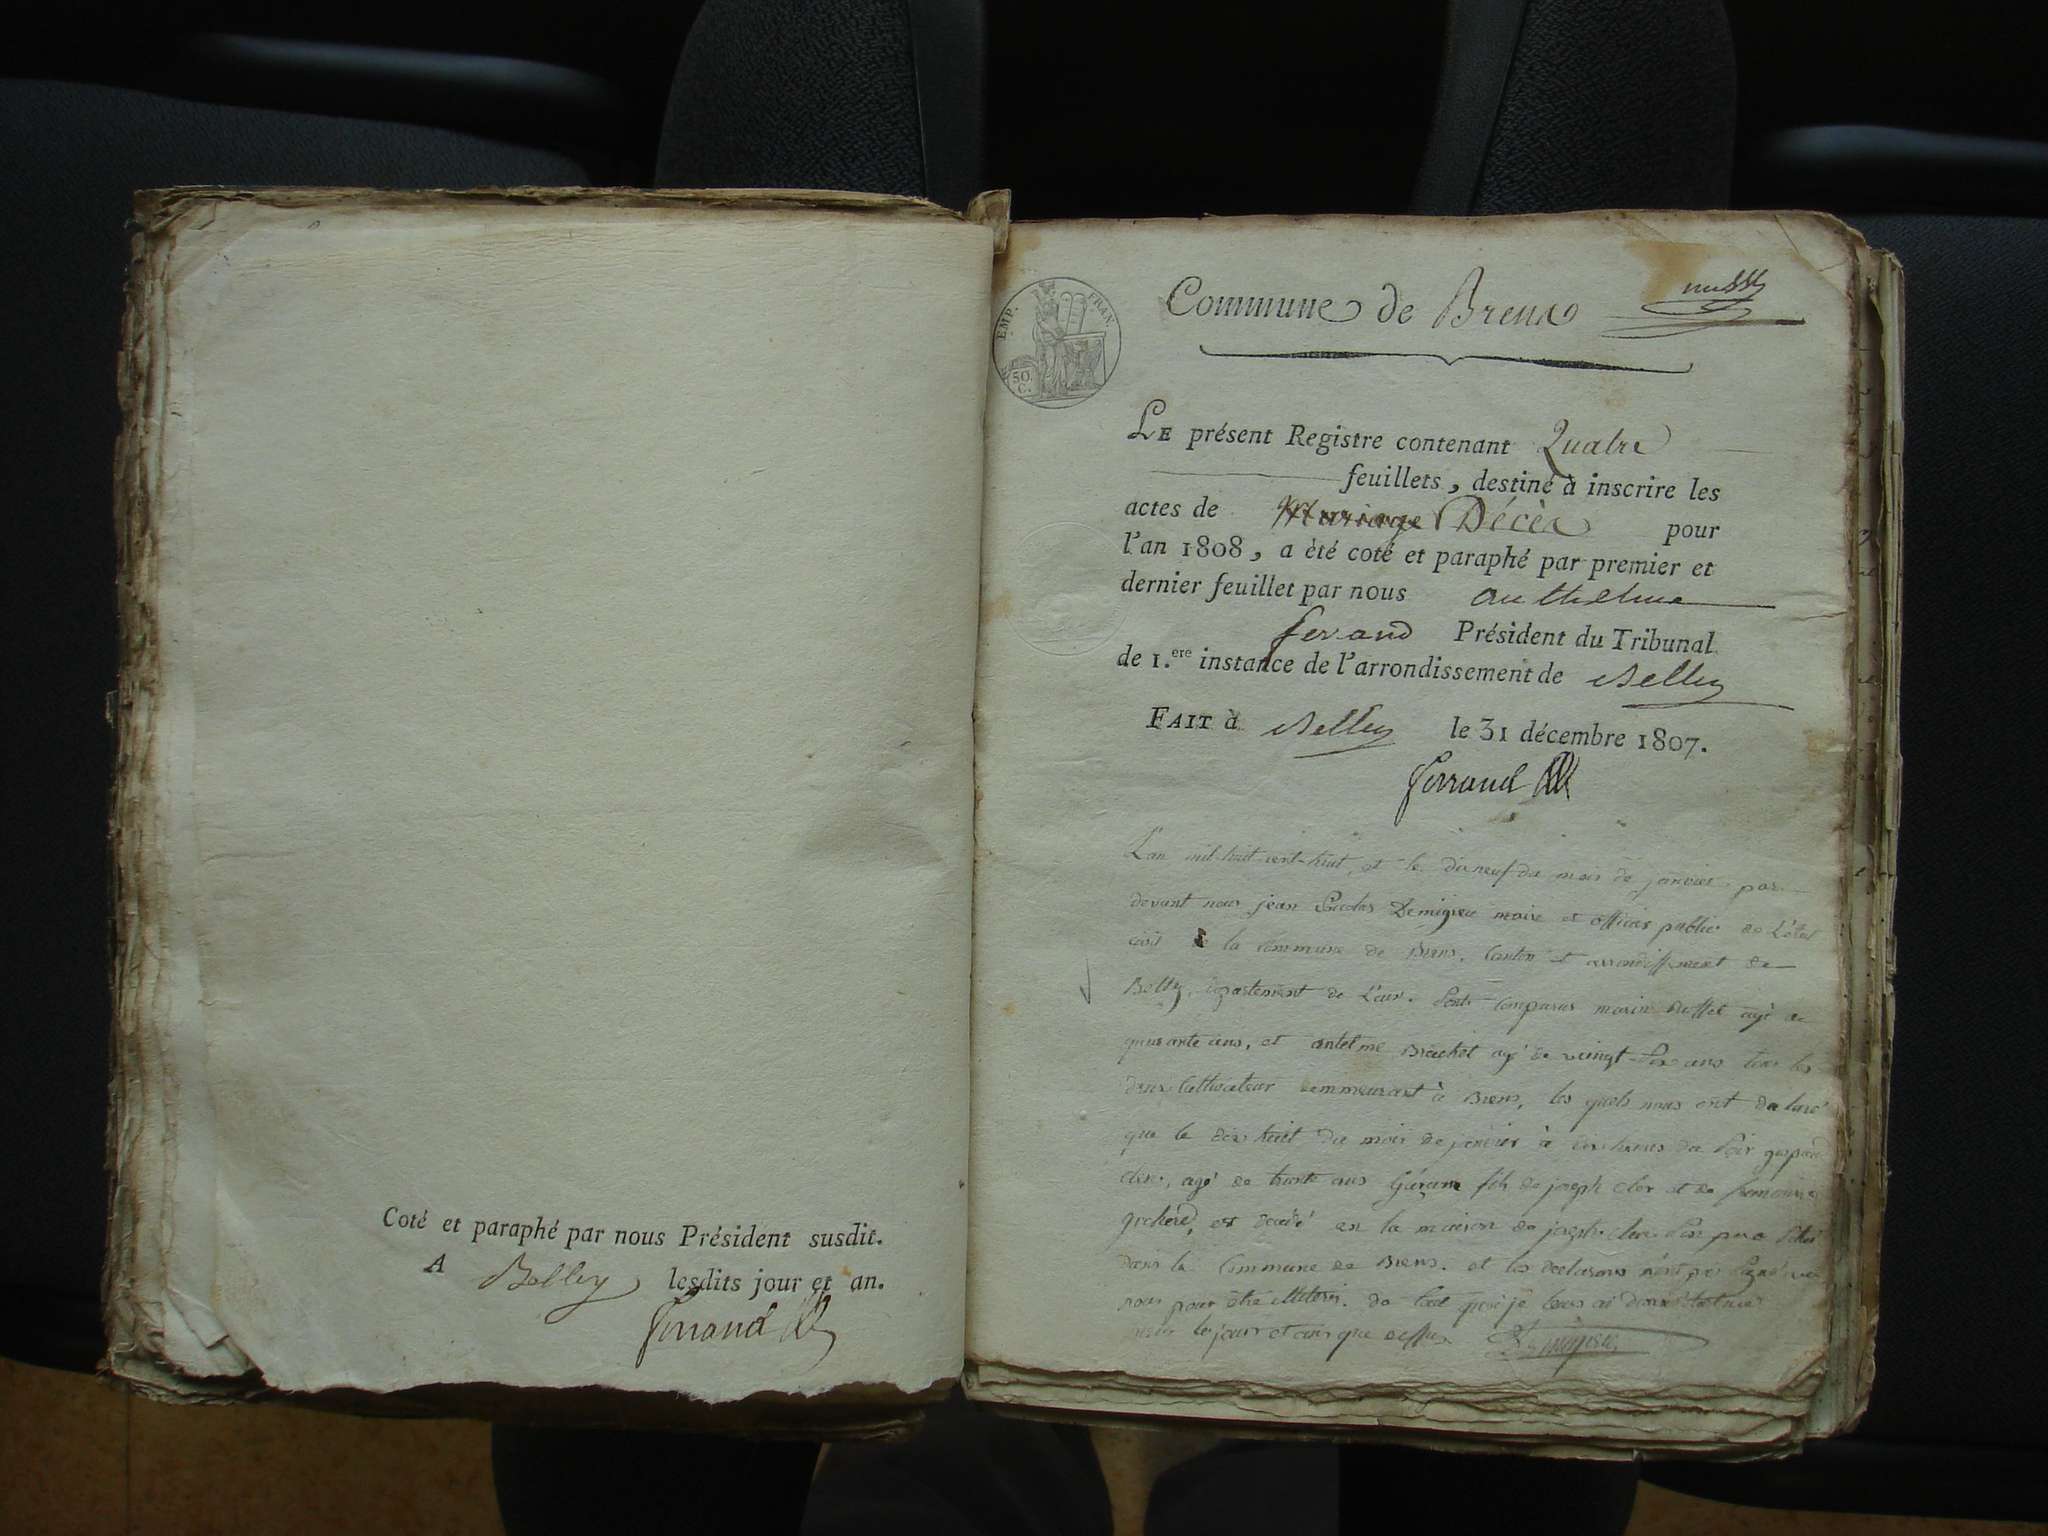 Coté et paraphé par nous Président susdit.
A Belley lesdits jour et an.
Ferrand
EMP. FRAN.
50.
C.
Commune de Brens
LE présent Registre contenant Quatre
feuillets, destiné à inscrire les
actes de Mariage Décès pour
l'an 1808, a été coté et paraphé par premier et
dernier feuillet par nous anthelme
ferand Président du Tribunal
de 1.ere instance de l'arrondissement de Belley
FAIT à Belley le 31 décembre 1807.
Ferrand
L'an mil huit cent huit, et le dix neuf du mois de janvier par
devant nous jean Demigieu maire et officier public de L'état
civil de la Commune de Brens, Canton et arrondissement de
Belley, département de L'ain. Sont Comparus marin age de
quarante ans, et antelme Brachet agé de vingt ans tous les
deux Cultivateur demmeurant à Brens, les quels nous ont declaré
que le dix huit du mois de janvier à heures du soir gaspard
cler, agé de trente ans fils de joseph cler et de
est decédé en la maison de joseph cler son pere
dans la Commune de Brens. et les declarans n'ont
nous pour être de tout
les jours et ans que dessus Demigieu